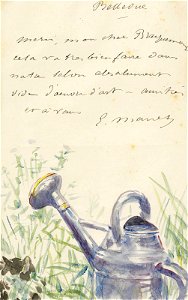 Bellevue
Merci, mon cher Bracquemond
cela va très bien faire dans
notre salon absolument
vide d'œuvre d'art - amitiés
et à vous
E. Manet